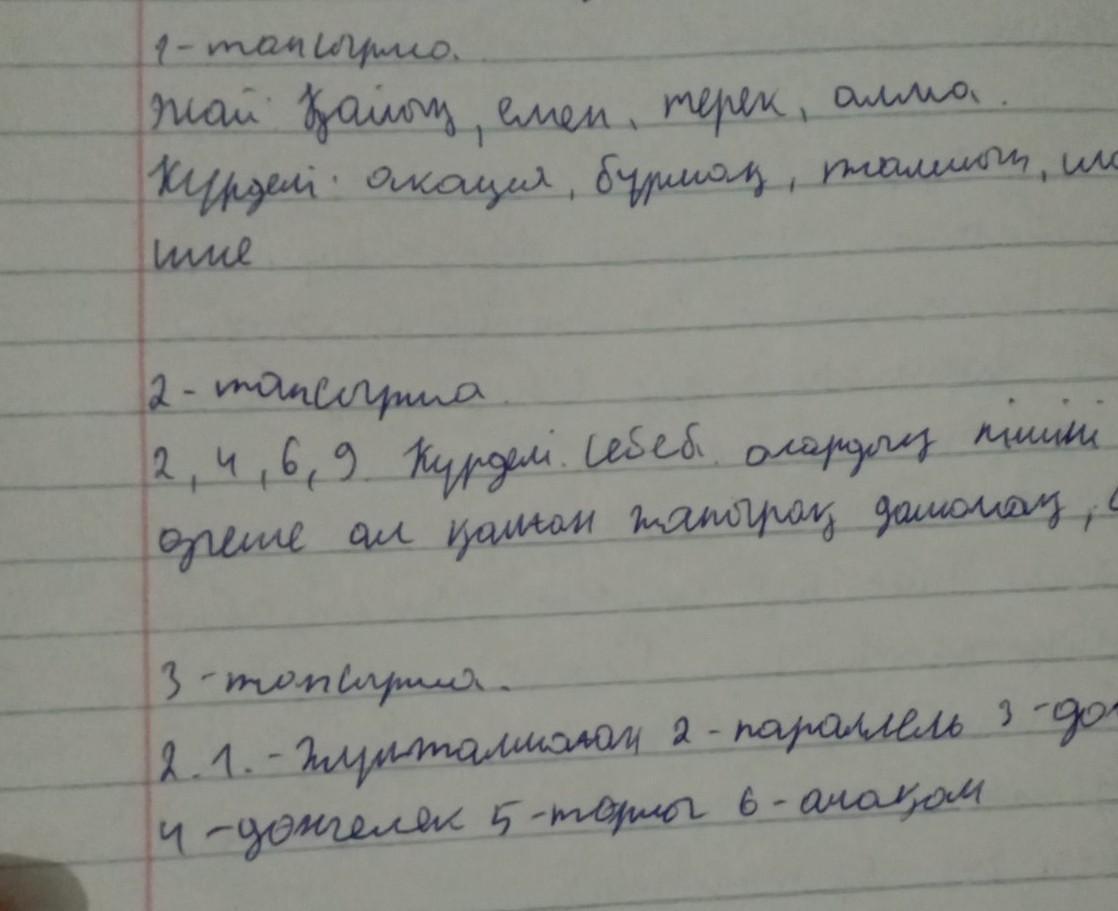 1-тапсырма.
Жай Қайың, емен, терек, алма.
Күрделі. акация, бұршақ, талшын,
шие
2-тапсырма
2, 4, 6, 9 Күрделі. Себебі олардың пішіні
өзгеше ал қалған жапырақ
3-тапсырма.
2. 1. - 2 - параллель 3 -
4 - дөңгелек 5 - торлы 6 - алақан